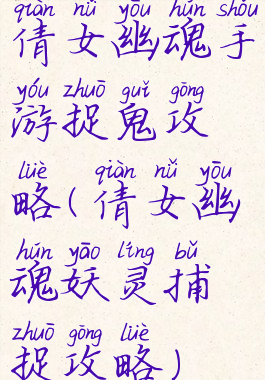 qiàn nǚ yōu hún shǒu
倩女幽魂手
yóu zhuō guǐ gōng
游捉鬼攻
lüè qiàn nǚ yōu
略(倩女幽
hún yāo líng bǔ
魂妖灵捕
zhuō gōng lüè
捉攻略)